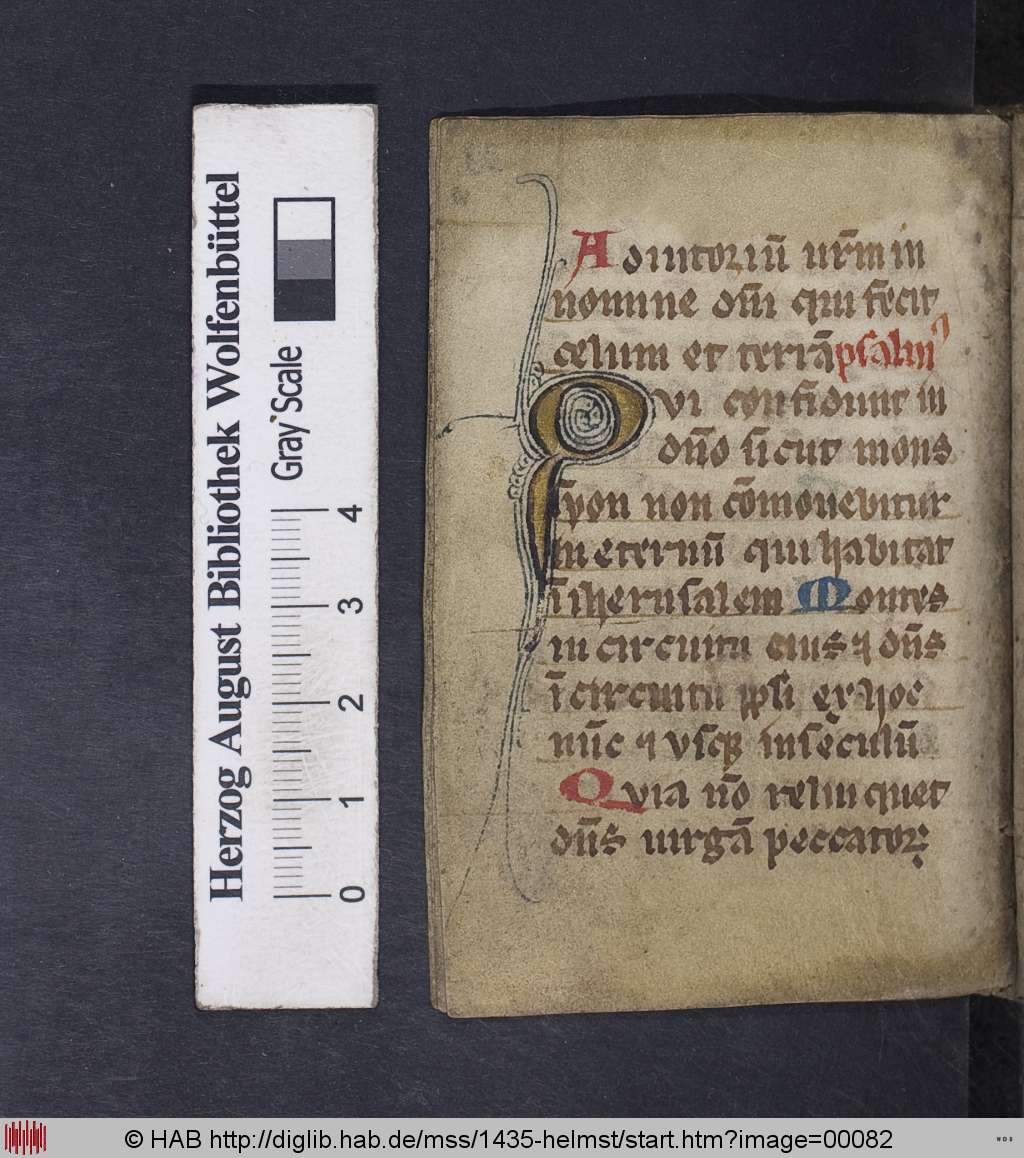 Herzog August Bibliothek Wolfenbüttel
Gray Scale
0 1 2 3 4
Adiutoriū nr̄m in
nomine dn̄i qui fecit
celum et terrā psalm9
Qui confidunt in
dn̄o sicut mons
syon non cōmovebitur
in eternū qui habitat
ī iherusalem Montes
in circuitu eius ⁊ dn̄s
ī circuitu ppl̄i ex hoc
nūc ⁊ vsqꝫ in seculū
Quia nō relinquet
dn̄s uirgā peccatoꝝ
© HAB http://diglib.hab.de/mss/1435-helmst/start.htm?image=00082